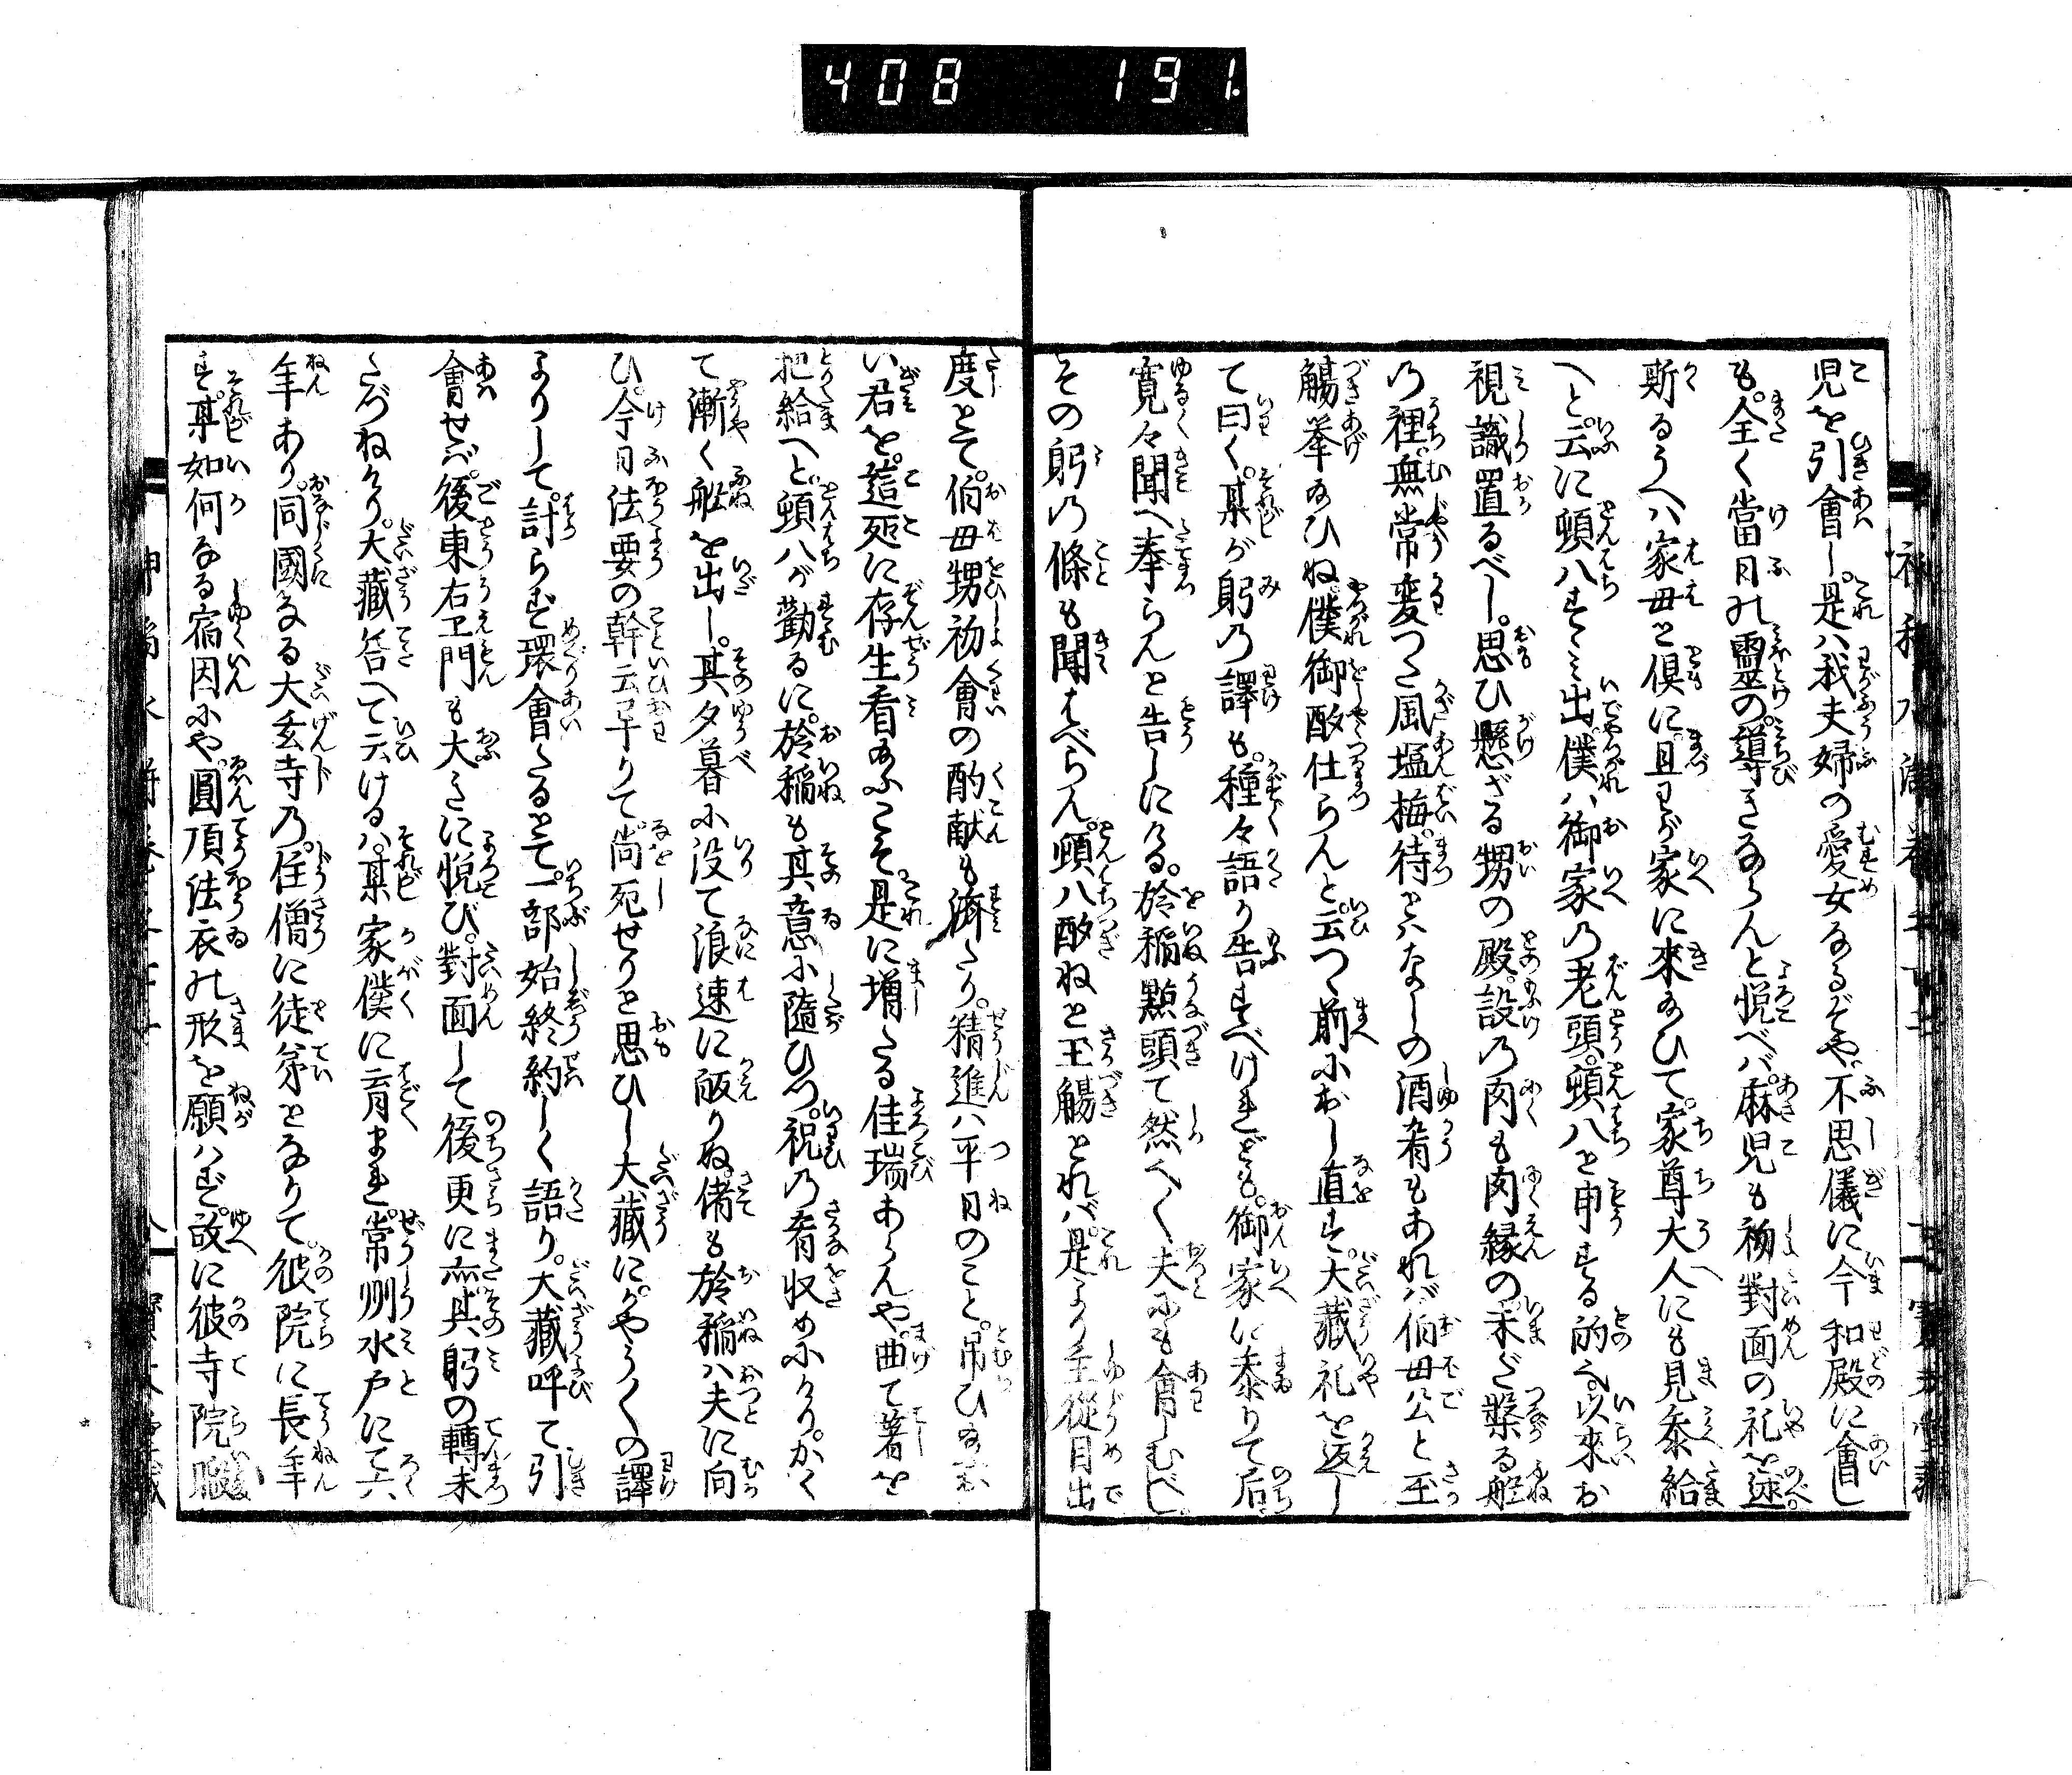 408 191.
児を引會し。是ハ我夫婦の愛女なるぞや。不思儀に今和殿に會し
も。全く當日の靈の導きならんと悦べバ。麻児も初對面の礼を述。
斯るうへハ家母と俱に。且わが家に來給ひて。家尊大人にも見參給
へと。云に頓八すゝみ出。僕ハ御家乃老頭。頓八と申する的。以來お
視識置るべし。思ひ懸ざる甥の殿。設乃肉も肉縁の。未だ繫る船
乃裡。無常変つた風塩梅。待とハなしの酒肴もあれバ。伯母公と玉
觴挙給ひね。僕御酌仕らんと。云つゝ前におし直す。大藏礼を返し
て曰く。某が躬乃譯も。種々語り告すべけれども。御家に參りて后
寛々聞へ奉らんと告しにける。於稲點頭て然べく。夫にも會しむべし。
その躬乃條も聞はべらん。頓八酌ねと玉觴とれバ。是より主從目出
度とて。伯母甥初會の酌献も濟たり。精進ハ平日のこと。吊ひ給
い君を。這処に存生看給ふこそ。是に増たる佳瑞あらんや。曲て著を
把給へと。頓八が勸るに。於稲も其意に隨ひつ。祝乃肴収めにけり。かく
て漸く船を出し。其夕暮に没て浪速に皈りぬ。偖も於稲ハ夫に向
ひ。今日法要の幹云早りて。尚死せりと思ひし大藏に。かやう〳〵の譯
よりして。計らず環會たるとて。一部始終約しく語り。大藏呼て引
會せバ。後東右エ門も大きに悦び。對面して後更に亦其躬の轉末
たづねけり。大藏答へて云けるハ。某家僕に育まれ。常州水戸にて六
年あり。同國なる大玄寺乃。住僧に徒弟となりて。彼院に長年
す。某如何なる宿因にや。圓頂法衣の形を願ハず。故に彼寺院